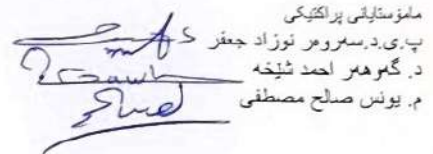 مامۆستایانی پراکتیکی
پ.ی.د.سەروەر نوزاد جعفر
د. گەوهەر احمد شێخە
م. یونس صالح مصطفی